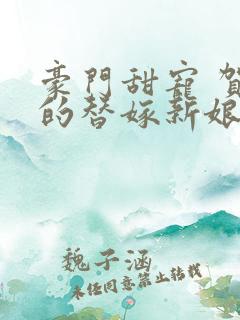 豪門甜寵 賀
的替嫁新娘
魏子涵
未經同意禁止轉載